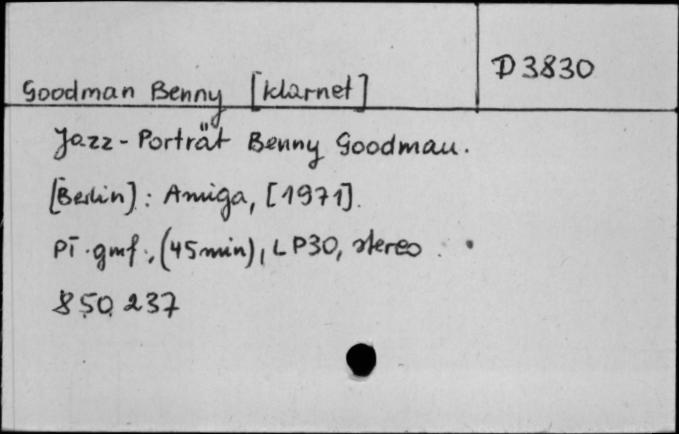 D 3830
Goodman Benny [klarnet]
Jazz-Porträt Benny Goodman.
[Berlin] : Amiga, [1971].
Pł. gmf., (45 min), LP30, stereo.
850 237